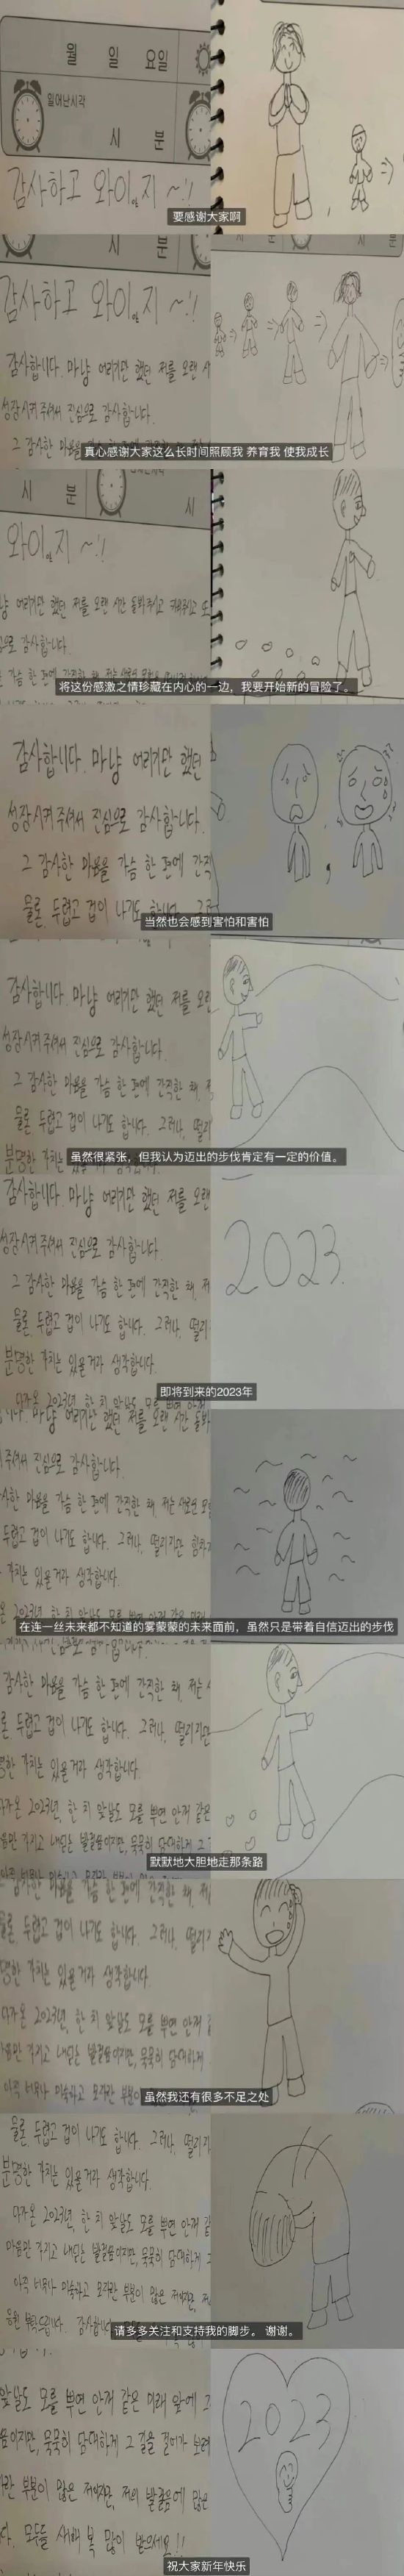 월 일 요일
일어난시각
시 분
감사하고 와이낫지 ~!!
要感谢大家啊
시 분
감사하고 와이낫지 ~!!
감사합니다. 마냥 어리기만 했던 저를 오랜 시
성장시켜주셔서 진심으로 감사합니다.
그 감사한 마음을
真心感谢大家这么长时间照顾我 养育我 使我成长
시 분
시
어리기만 했던 저를 오랜 시간 돌봐주시고 키워주시고 또
으로 감사합니다.
한 마음을 가슴 한 편에 간직한 채
将这份感激之情珍藏在内心的一边，我要开始新的冒险了。
감사합니다. 마냥 어리기만 했던
성장시켜 주셔서 진심으로 감사합니다.
그 감사한 마음을 가슴 한 편에 간직
물론, 두렵고 겁이 나기도 합니다.
当然也会感到害怕和害怕
감사합니다. 마냥 어리기만 했던 저를 오랜
성장시켜주셔서 진심으로 감사합니다.
그 감사한 마음을 가슴 한 편에 간직한 채,
물론, 두렵고 겁이 나기도 합니다. 그러나, 떨리
분명한 가치는
虽然很紧张，但我认为迈出的步伐肯定有一定的价值。
감사합니다. 마냥 어리기만 했던 저를 오랜
성장시켜주셔서 진심으로 감사합니다.
그 감사한 마음을 가슴 한 편에 간직한 채,
물론, 두렵고 겁이 나기도 합니다. 그러나, 떨리
분명한 가치는 있을거라 생각합니다.
2023.
即将到来的2023年
어리기만 했던 저를 오랜 시간 돌봐
주셔서 진심으로 감사합니다.
사한 마음을 가슴 한 편에 간직한 채, 저는 새로운 모험
두렵고 겁이 나기도 합니다. 그러나, 떨리지만 힘차게
가치는 있을거라 생각합니다.
在连一丝未来都不知道的雾蒙蒙的未来面前，虽然只是带着自信迈出的步伐
감사한 마음을 가슴 한 편에 간직한 채, 저는
론, 두렵고 겁이 나기도 합니다. 그러나, 떨리지만
명한 가치는 있을거라 생각합니다.
다가올 2023년, 한 치 앞날도 모를 뿌연 안개 같은
음만 가지고 내딛는 발걸음이지만, 묵묵히 담대하게 그
默默地大胆地走那条路
가슴 한 편에 간직한 채, 저
물론, 두렵고 겁이 나기도 합니다. 그러나, 떨리지
명한 가치는 있을거라 생각합니다.
다가올 2023년, 한 치 앞날도 모를 뿌연 안개
음만 가지고 내딛는 발걸음이지만, 묵묵히 담대하게
아직 너무나 미숙하고 모자란 부분이
虽然我还有很多不足之处
물론, 두렵고 겁이 나기도 합니다. 그러나, 떨리지
분명한 가치는 있을거라 생각합니다.
다가올 2023년, 한 치 앞날도 모를 뿌연 안개 같
마음만 가지고 내딛는 발걸음이지만, 묵묵히 담대하게 그
아직 너무나 미숙하고 모자란 부분이 많은 저이지만, 저
응원 부탁드립니다. 감사합니다.
请多多关注和支持我的脚步。 谢谢。
앞날도 모를 뿌연 안개 같은 미래 앞에 그
음이지만, 묵묵히 담대하게 그 길을 걸어가 보려
란 부분이 많은 저이지만, 저의 발걸음에 많은
다. 모두들 새해 복 많이 받으세요!!
2023
祝大家新年快乐